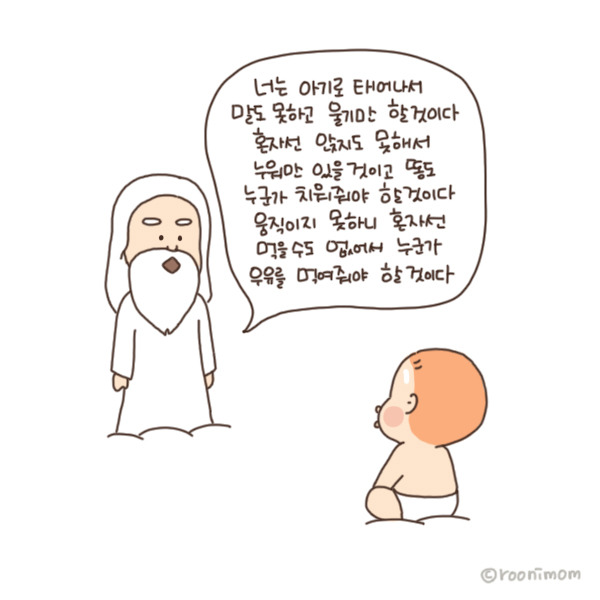 너는 아기로 태어나서
말도 못하고 울기만 할것이다
혼자선 앉지도 못해서
누워만 있을것이고 똥도
누군가 치워줘야 할것이다
움직이지 못하니 혼자선
먹을수도 없어서 누군가
우유를 먹여줘야 할것이다
©roonimom